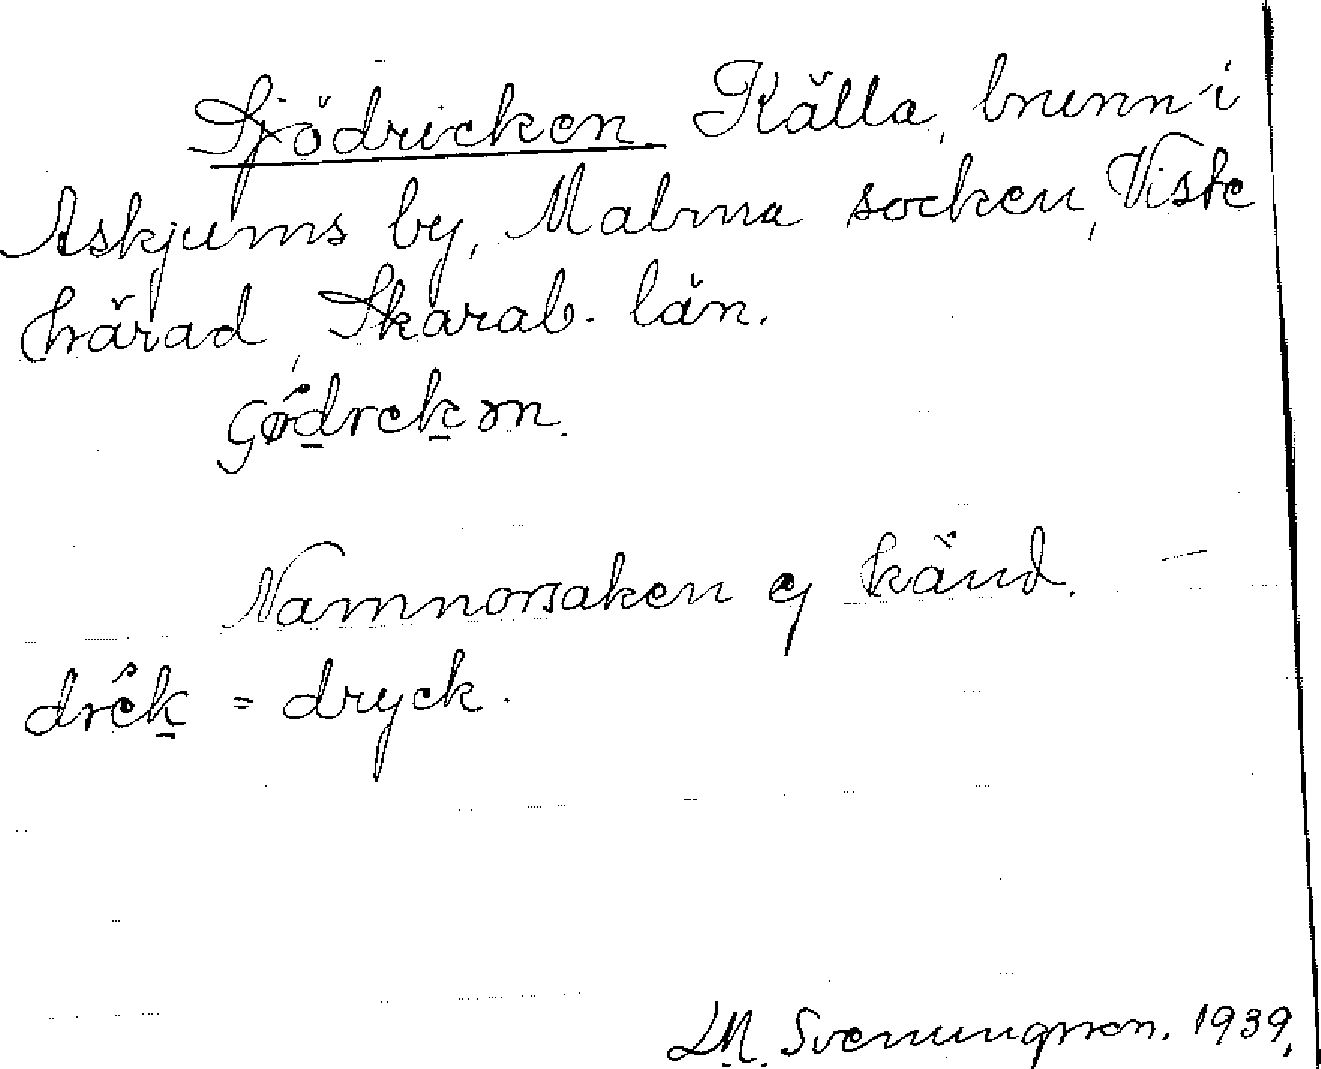 Sjödricken Källa, brunn i
Askjums by, Malma socken, Viste
härad, Skarab. län.
Namnorsaken ej känd. —
= dryck.
Svenungsson. 1939.